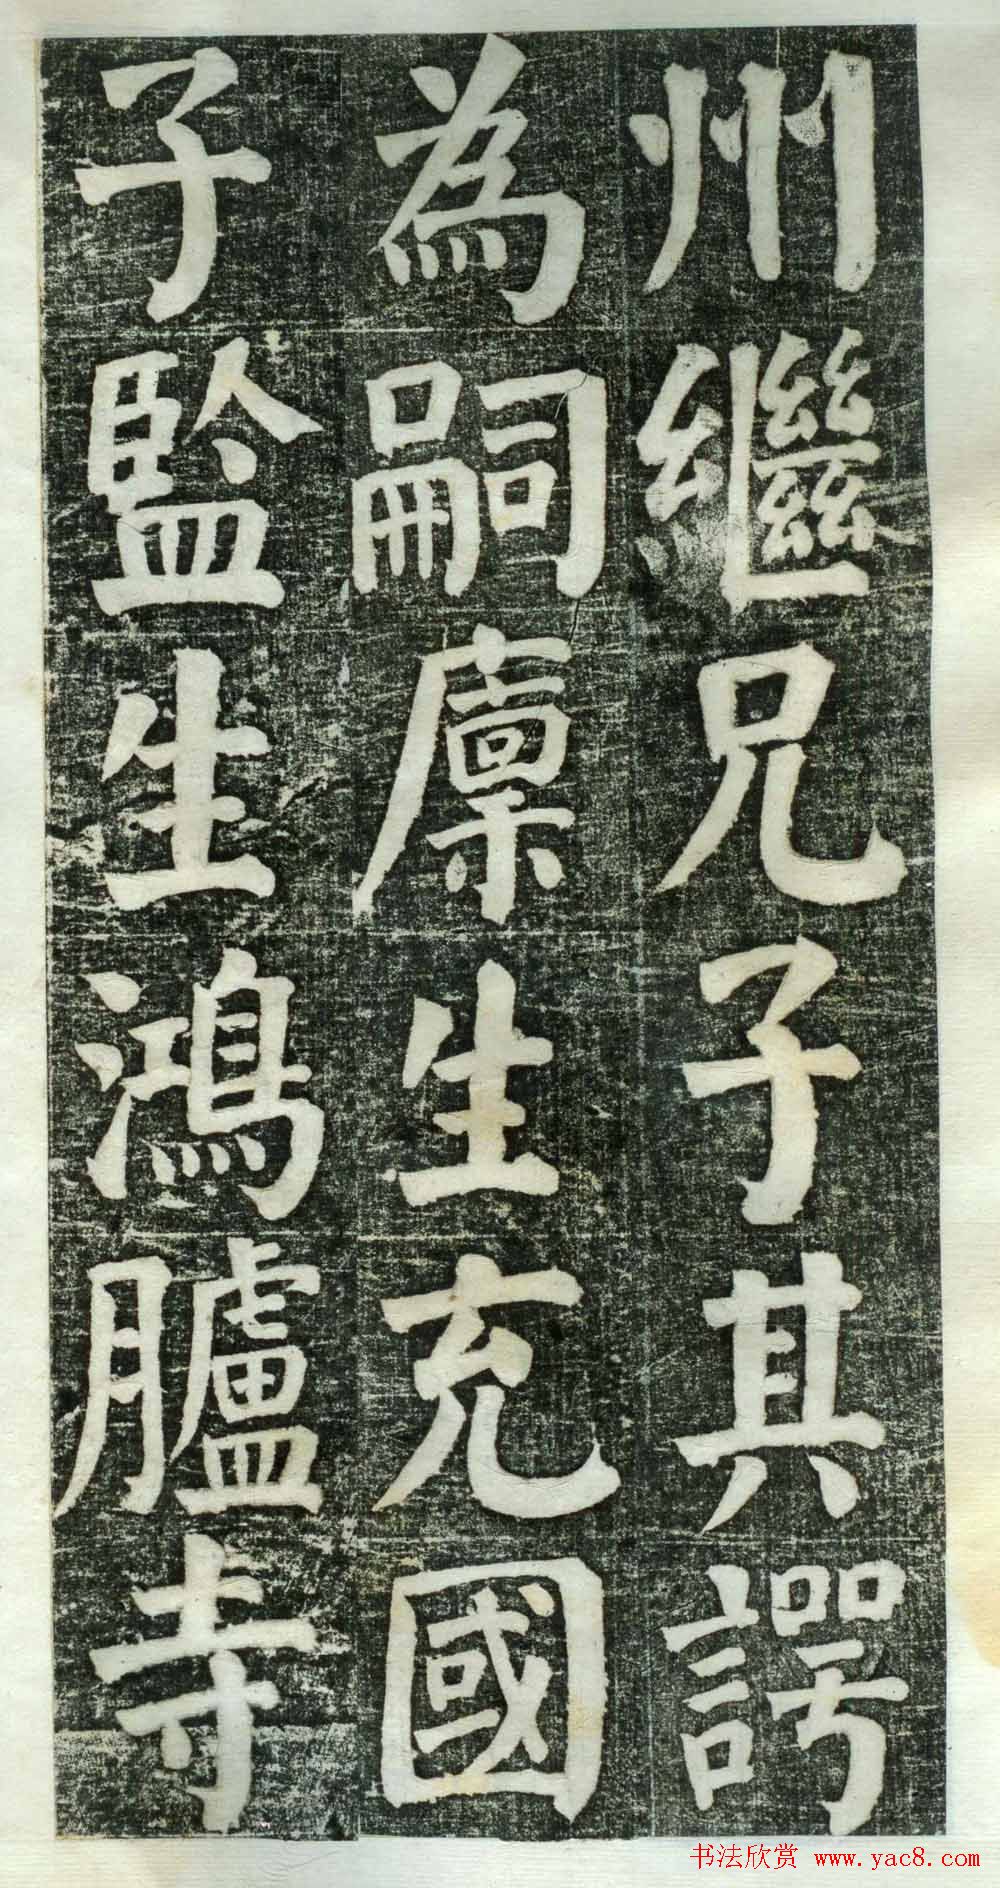 州繼兄子其諤
為嗣廩生充國
子監生鴻臚寺
书法欣赏 www.yac8.com